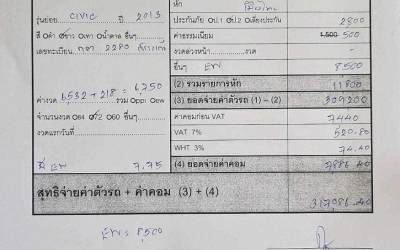 หัก
รุ่นย่อย CIVIC ปี 2013
ประกันภัย ป.1 ป.2 เตี๋ยงประกัน 2800
สี ดำ ขาว เทา น้ำตาล อื่นๆ
ค่าธรรมเนียม 1,500 500
เลขทะเบียน 2280
งวดล่วงหน้า งวด -
อื่นๆ EW 8,500
(2) รวมรายการหัก 11800
ค่างวด 6,532 + 218 = 6,750 รวม ppi ew
(3) ยอดจ่ายค่าตัวรถ (1) – (2) 309200
จำนวนงวด 84 72 60 อื่นๆ
ค่าคอมก่อน VAT 7440
งวดแรกวันที่
VAT 7% 520.80
WHT 3% 74.40
EW 7.75
(4) ยอดจ่ายค่าคอม 7886.40
สุทธิจ่ายค่าตัวรถ + ค่าคอม (3) + (4) 317,086.40
EW = 8,500